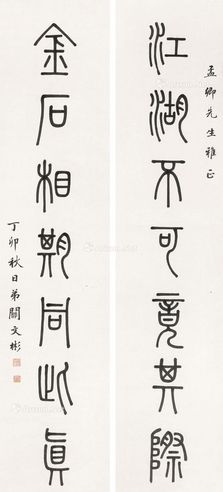 孟卿先生雅正
江湖不可竟其際
金石相期同此真
丁卯秋日弟關文彬